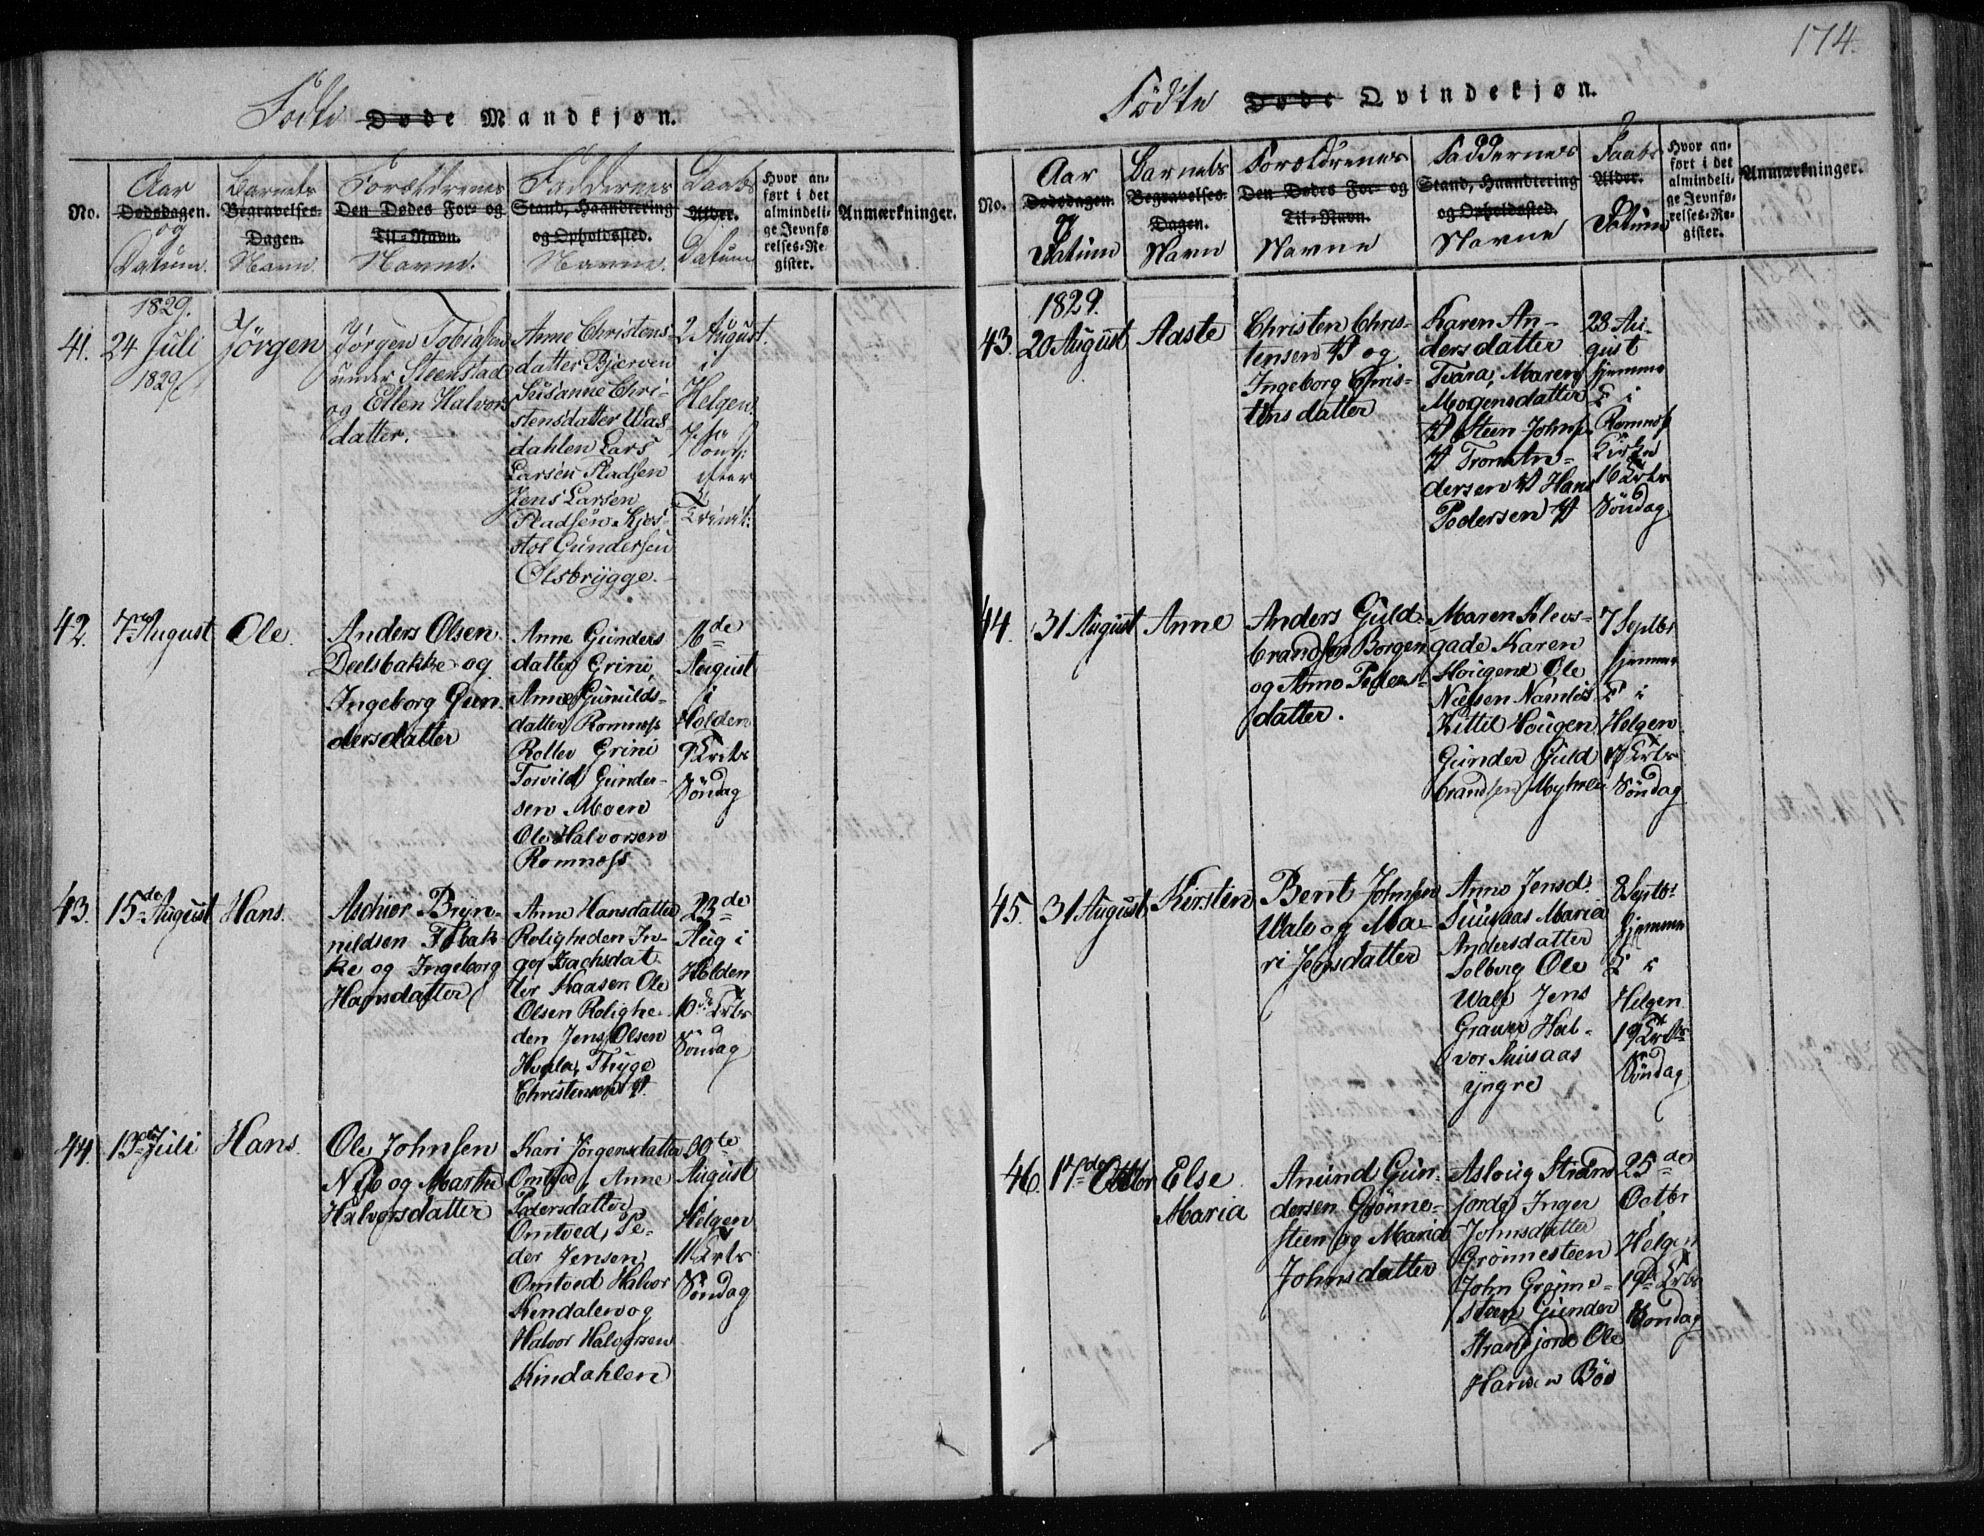 174.
Födte Døde Mandkjøn.
No.
Aar
Dødsdagen.
og
Datum.
Barnets
Begravelses-
Dagen.
Navn.
Forældrenes
Den Dødes For- og
Til-Navn.
Navne.
Faddernes
Stand, Haandtering
og Opholdssted.
Navne.
Daabs
Alder.
Datum
Hvor an-
ført i det
almindeli-
ge Jevnfø
relses-Re
gister.
Anmærkninger.
1829.
41.
24 Juli
1829
Jörgen
Jörgen Tobiassen
under Steenstad
og Ellen Halvors
datter.
Anne Christens-
datter Bjerven
Susanne Chri-
stensdatter Was-
dahlen Lars
Larsen Pladsen
Jens Larsen
Pladsen Kjos-
stol Gundersen
Olsbrygge.
2 August
i
Helgen
7de
Sönd:
efter
Trinit:
42.
7de August
Ole.
Anders Olsen
Deelsbakke og
Ingeborg Gun-
dersdatter
Anne Gunders
datter Grini,
Anne Gunulds-
datter Romness
Rollev Grini
Torvild Gunder-
sen Moen
Ole Halvorsen
Romness
16de
August
i
Holden
9 Trtts
Söndag
43.
15de August
Hans.
Aschier Bryn-
nildsen Fobak-
ke og Ingeborg
Hansdatter
Anne Hansdatter
Roligheden In-
ger Isachsdat-
ter Kaasen Ole
Olsen Rolighe-
den Jens Olsen
Hvala, Thyge
Christensen
23de
Aug i
Holden
10de Trts
Söndag
44.
13de Juli
Hans.
Ole Johnsen
Næs og Marthe
Halvorsdatter
Kari Jörgensdatter
Omtved, Anne
Pedersdatter
Omtved, Pe-
der Jensen
Omtved Halvor
Kindalen og
Halvor Halvorsen
Kindahlen
30te
August
Helgen
11 Trts
Söndag
Födte Døde Qvindekjøn.
No.
Aar
Dødsdagen.
og
Datum
Barnets
Begravelses-
Dagen.
Navn
Forældrenes
Den Dødes For- og
Til-Navn.
Navne
Faddernes
Stand, Haandtering
og Opholdssted.
Navne
Daabs
Alder.
Datum
Hvor an-
ført i det
almindeli-
ge Jevnfø-
relses-Re-
gister.
Anmærkninger.
1829.
43.
20 August
Aaste
Christen Chris-
tensen og
Ingeborg Chris-
tensdatter
Karen An-
dersdatter
Tvara, Maren
Mogensdatter
Steen Johns.
Tron An-
dersen Hans
Pedersen
28 Au-
gust
hjemme
i
Romness
Kirke
16 Trts
Söndag
44.
31 August
Anne
Anders Guld-
brandsen Borgen
og Anne Peders-
datter.
Maren Klevs-
gade Karen
Hougen Ole
Nielsen Namlös
Kittil Hougen
Gunder Guld
brandsen Myhrer
7 Septbr
hjemme
i
Helgen
17 Trts
Söndag
45.
31 August
Kirsten
Bent Johnsen
Wale og Ma-
ri Jensdatter
Anne Jensd.
Suusaas Maria
Andersdatter
Solberg Ole
Wale Jens
Graver Hal-
vor Suusaas
yngre
8 Septbr
hjemme
i
Helgen
19 Trts
Söndag
46.
17de Octbr
Else
Maria
Anund Gun-
dersen Grönne-
steen og Maria
Johnsdatter
Asloug Strand-
fjorde, Inger
Johnsdatter
Grönnesteen
John Grönne-
steen Gunder
Strandfjorde Ole
Hansen Böe
25de
Octbr
i
Helgen
19de Trts
Söndag